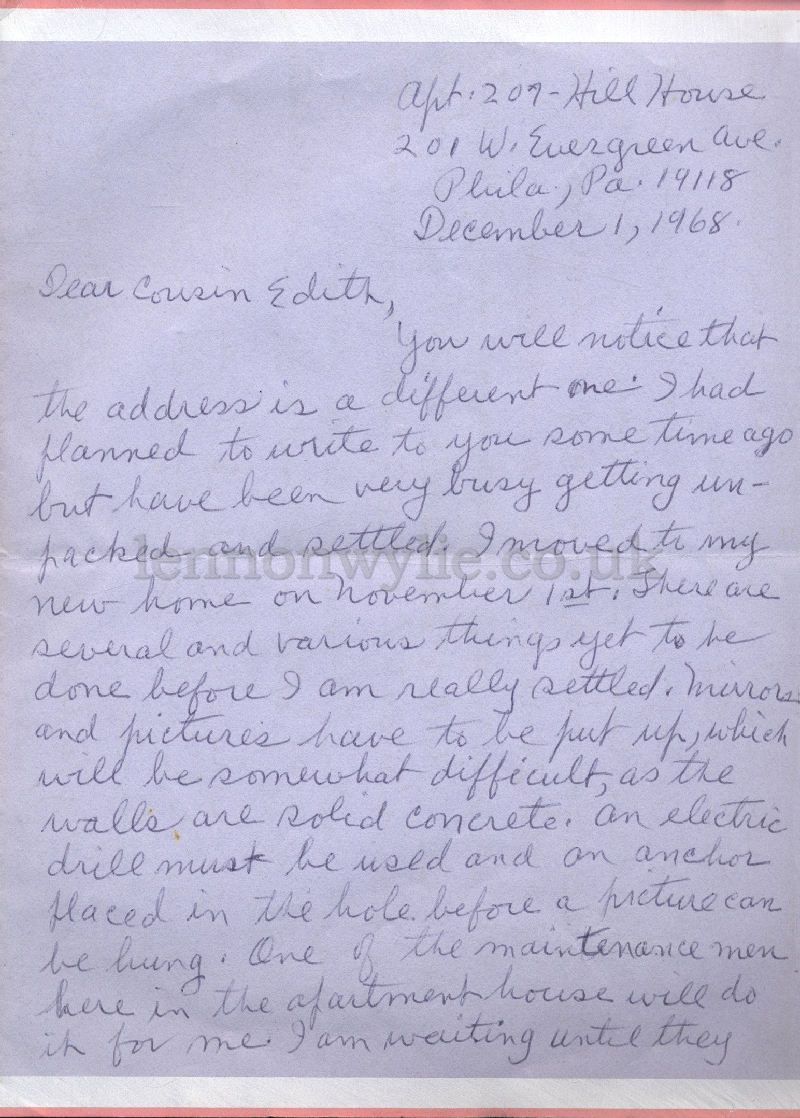 Apt. 209 - Hill House
201 W. Evergreen Ave.
Phila., Pa. 19118
December 1, 1968.
Dear Cousin Edith,
You will notice that
the address is a different one. I had
planned to write to you some time ago
but have been very busy getting un-
packed and settled. I moved to my
lennonwylie.co.uk
new home on November 1st. There are
several and various things yet to be
done before I am really settled. Mirrors
and pictures have to be put up, which
will be somewhat difficult, as the
walls are solid concrete. An electric
drill must be used and an anchor
placed in the hole before a picture can
be hung. One of the maintenance men
here in the apartment house will do
it for me. I am waiting until they